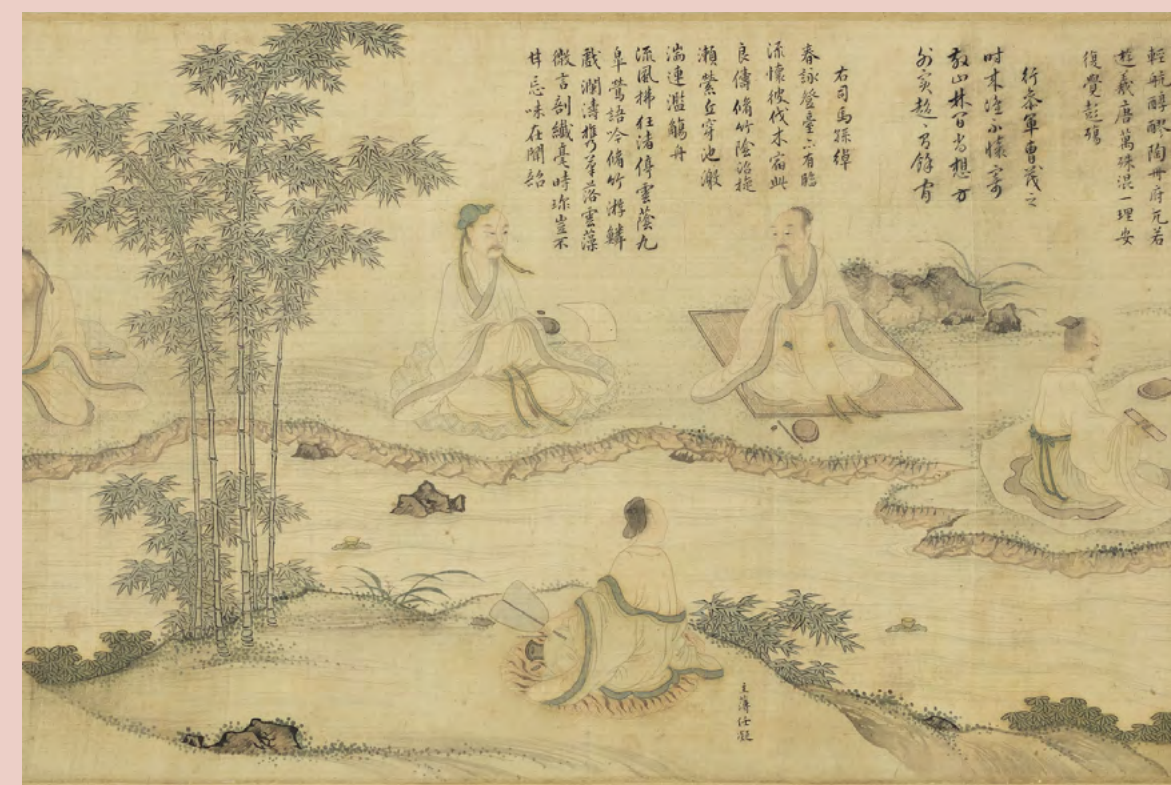 輕航醇醪陶丹府兀若
遊羲唐萬殊混一理安
復覺彭殤
行參軍曹茂之
时来誰不懷寄
散山林間尚想方
外賓超
右司馬孫綽
春詠登臺亦有臨
流懷彼伐木宿此
良儔脩竹陰沼旋
瀨縈丘穿池激
湍連濫觴舟
流風拂枉渚停雲蔭九
皋鶯語吟脩竹游鱗
戲瀾濤攜筆落雲藻
微言剖纖毫時珍豈不
甘忘味在聞韶
主簿任凝